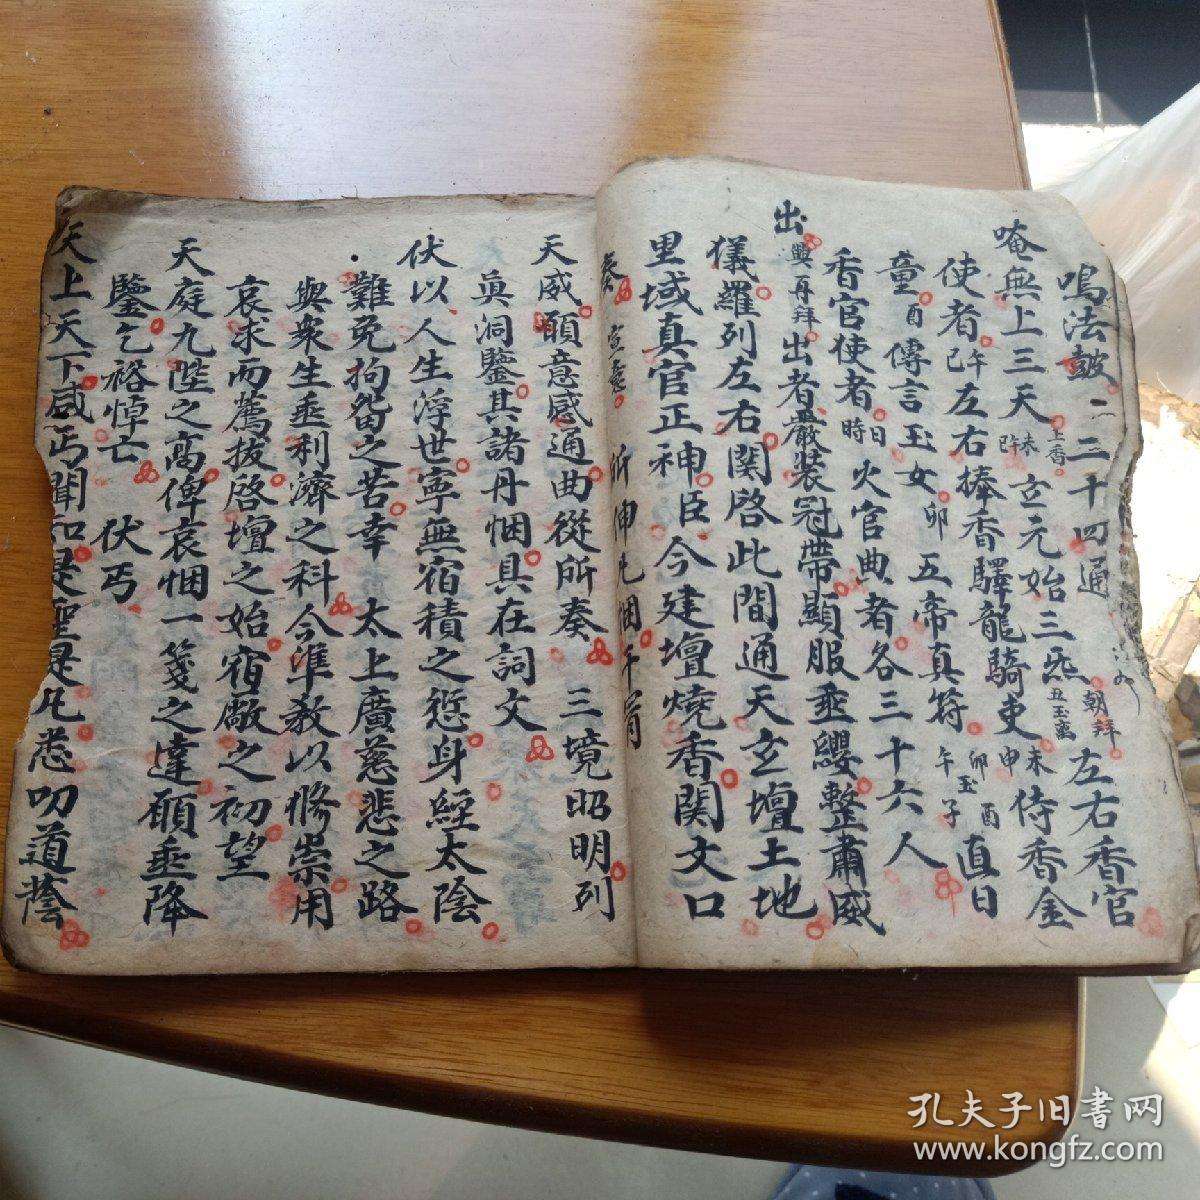 鳴法皷 二三十四通
唵無上三天 玄元始三炁 朝拜 左右香官
使者 左右捧香驛龍騎吏 侍香金
童 傳言玉女 五帝真符 直日
香官使者 火官典者各三十六人
出 興再拜 出者嚴裝冠帶顯服垂纓整肅威
儀羅列左右関啓此間通天玄壇土地
里域真官正神臣今建壇燒香関文口
奏 宣意 所伸凢悃于胃
天威願意感通曲從所奏 三境昭明列
眞洞鑒其諸丹悃具在詞文
伏以人生浮世寧無宿積之愆身經太陰
難免拘命之苦幸 太上廣慈悲之路
與衆生垂利濟之科今準教以修崇用
哀求而薦拔啓壇之始宿啟之初望
天庭九陛之高俾哀悃一箋之達願垂降
鑒乞裕悼亡 伏丐
天上天下咸丐聞知是聖是凢悉叨道蔭
孔夫子旧書网
www.kongfz.com